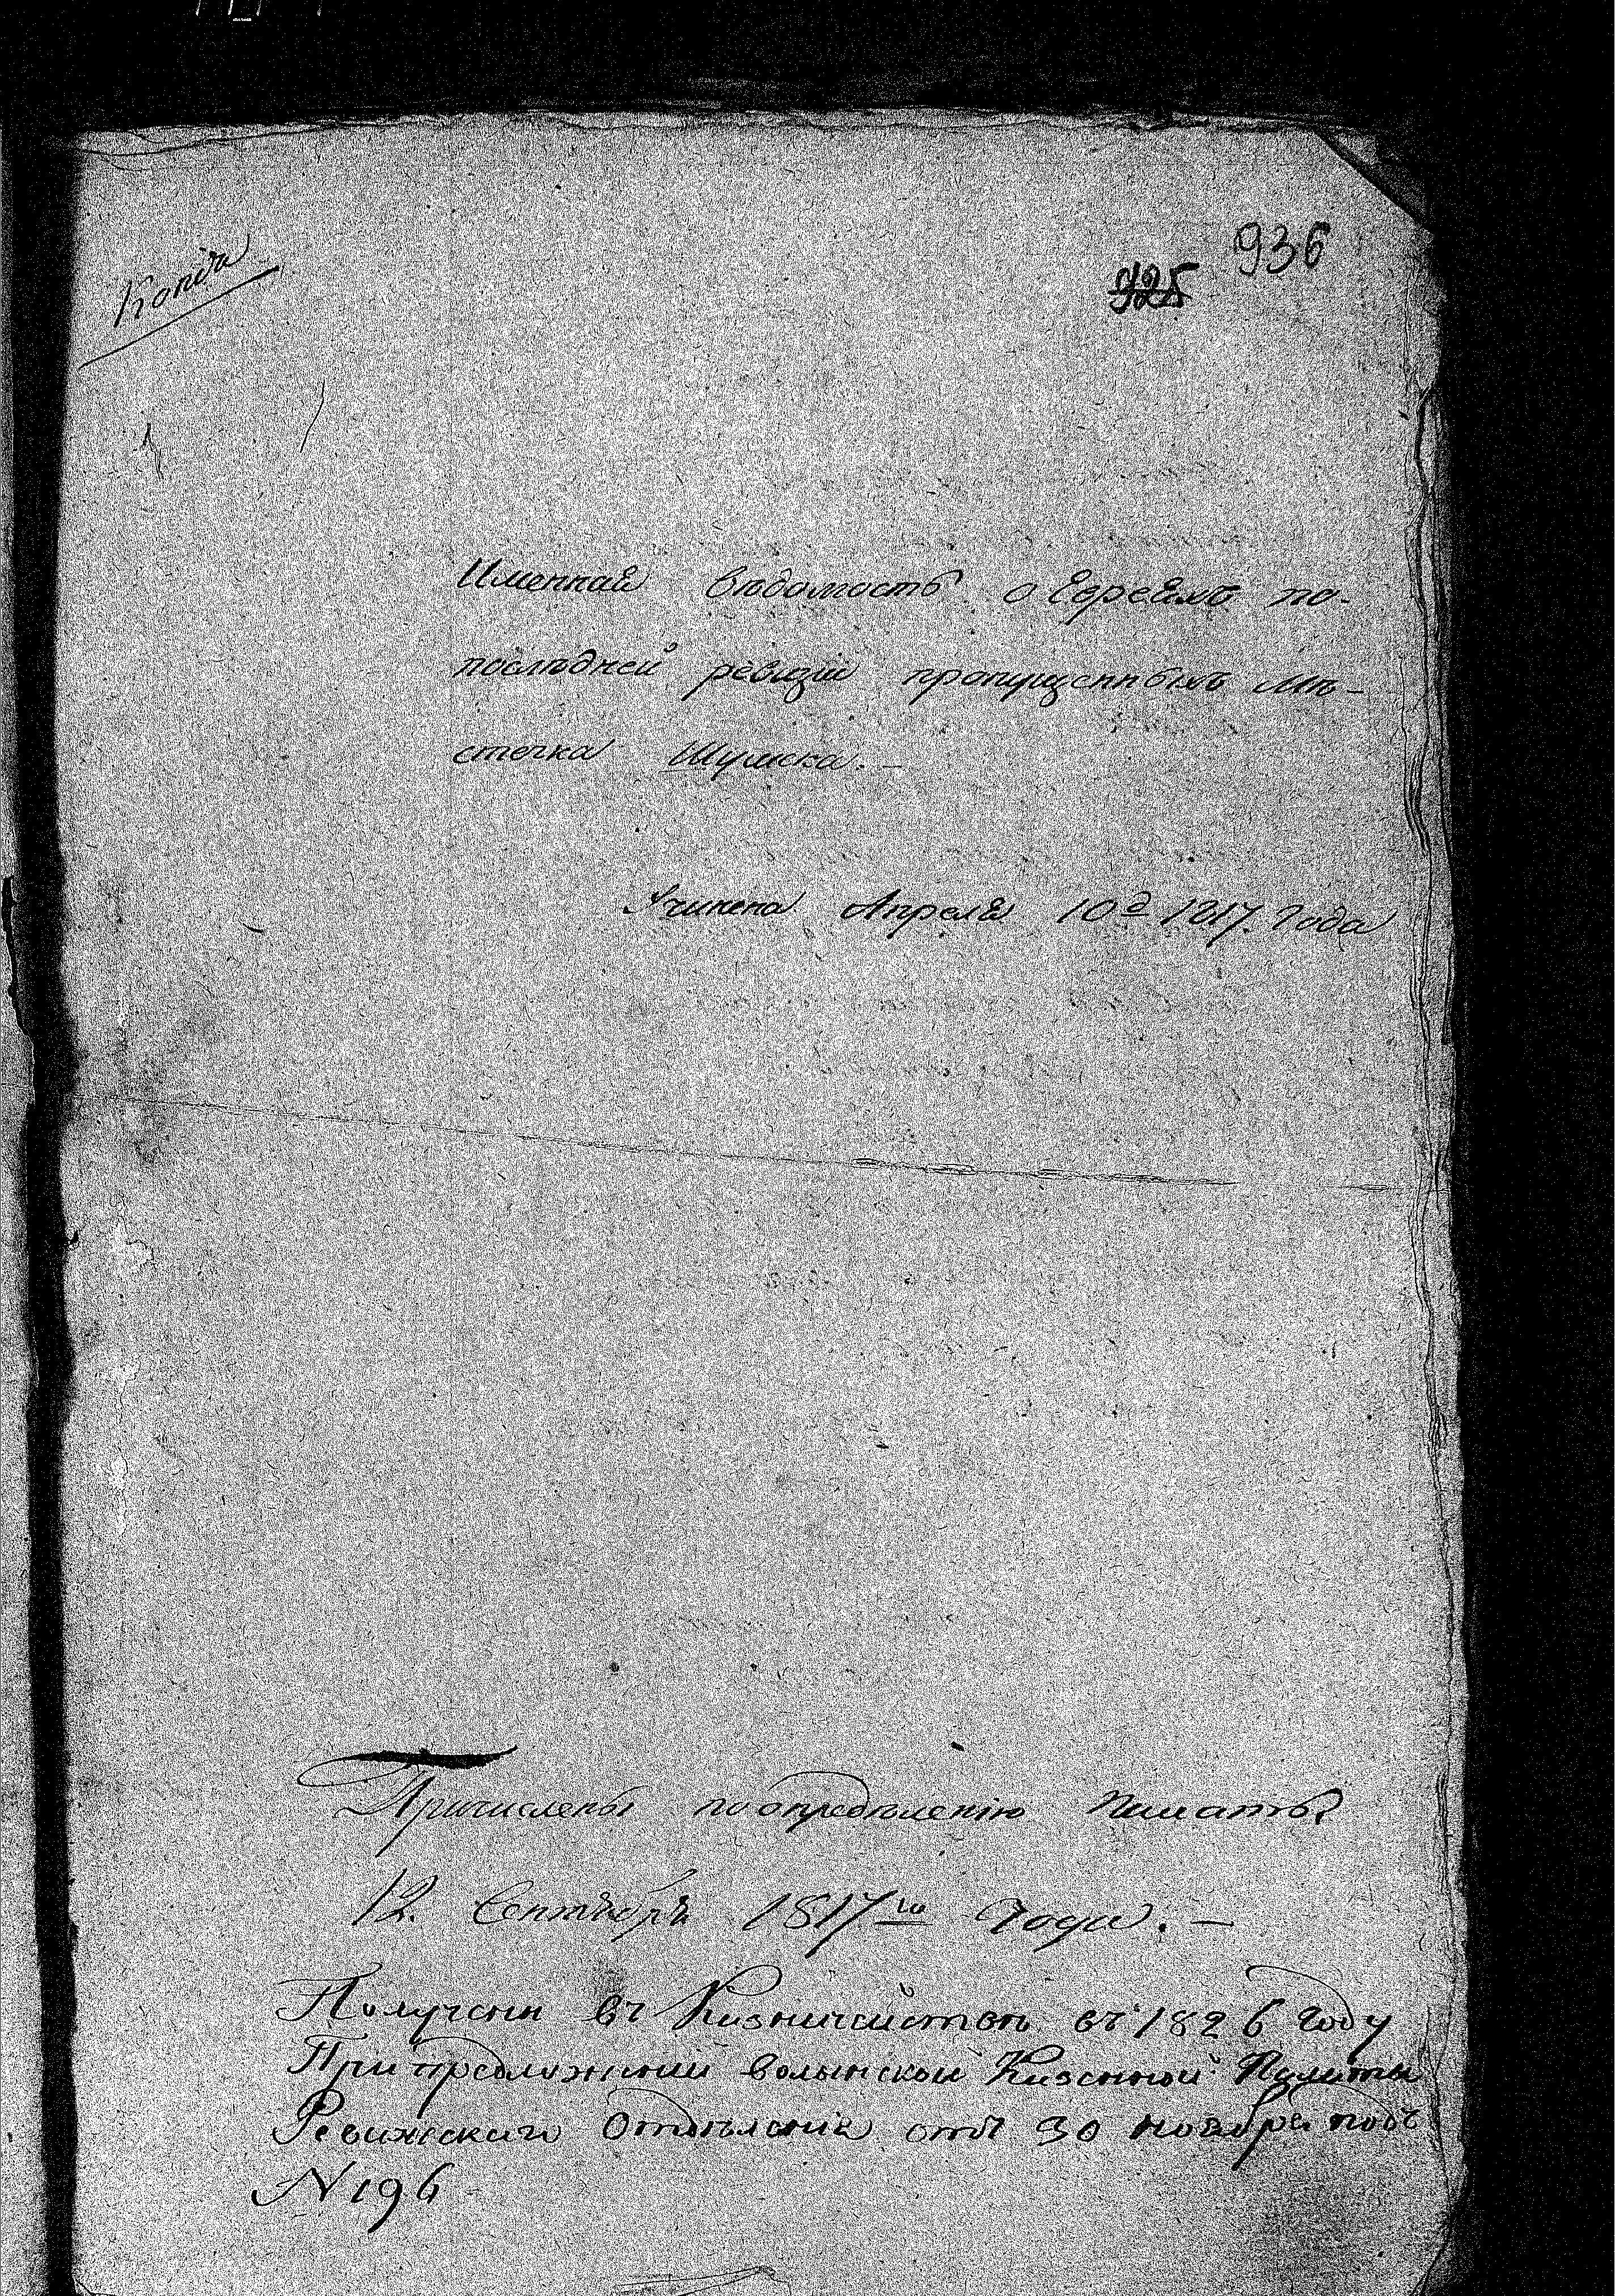 Копія
936
925
Именная вѣдомость о Евреяхъ по-
послѣдней ревизіи пропущенныхъ Мѣ-
стечка Шумска. —
Учинена Апреля 10 д 1817. Года
Причислены по определенію Палаты
12. Сентября 1817го Года. —
Получена въ Казначействѣ въ 1826 Году
При предложении Волынской Казенной Палаты
Ревижскаго Отдѣленія отъ 30 ноября подъ
N 196